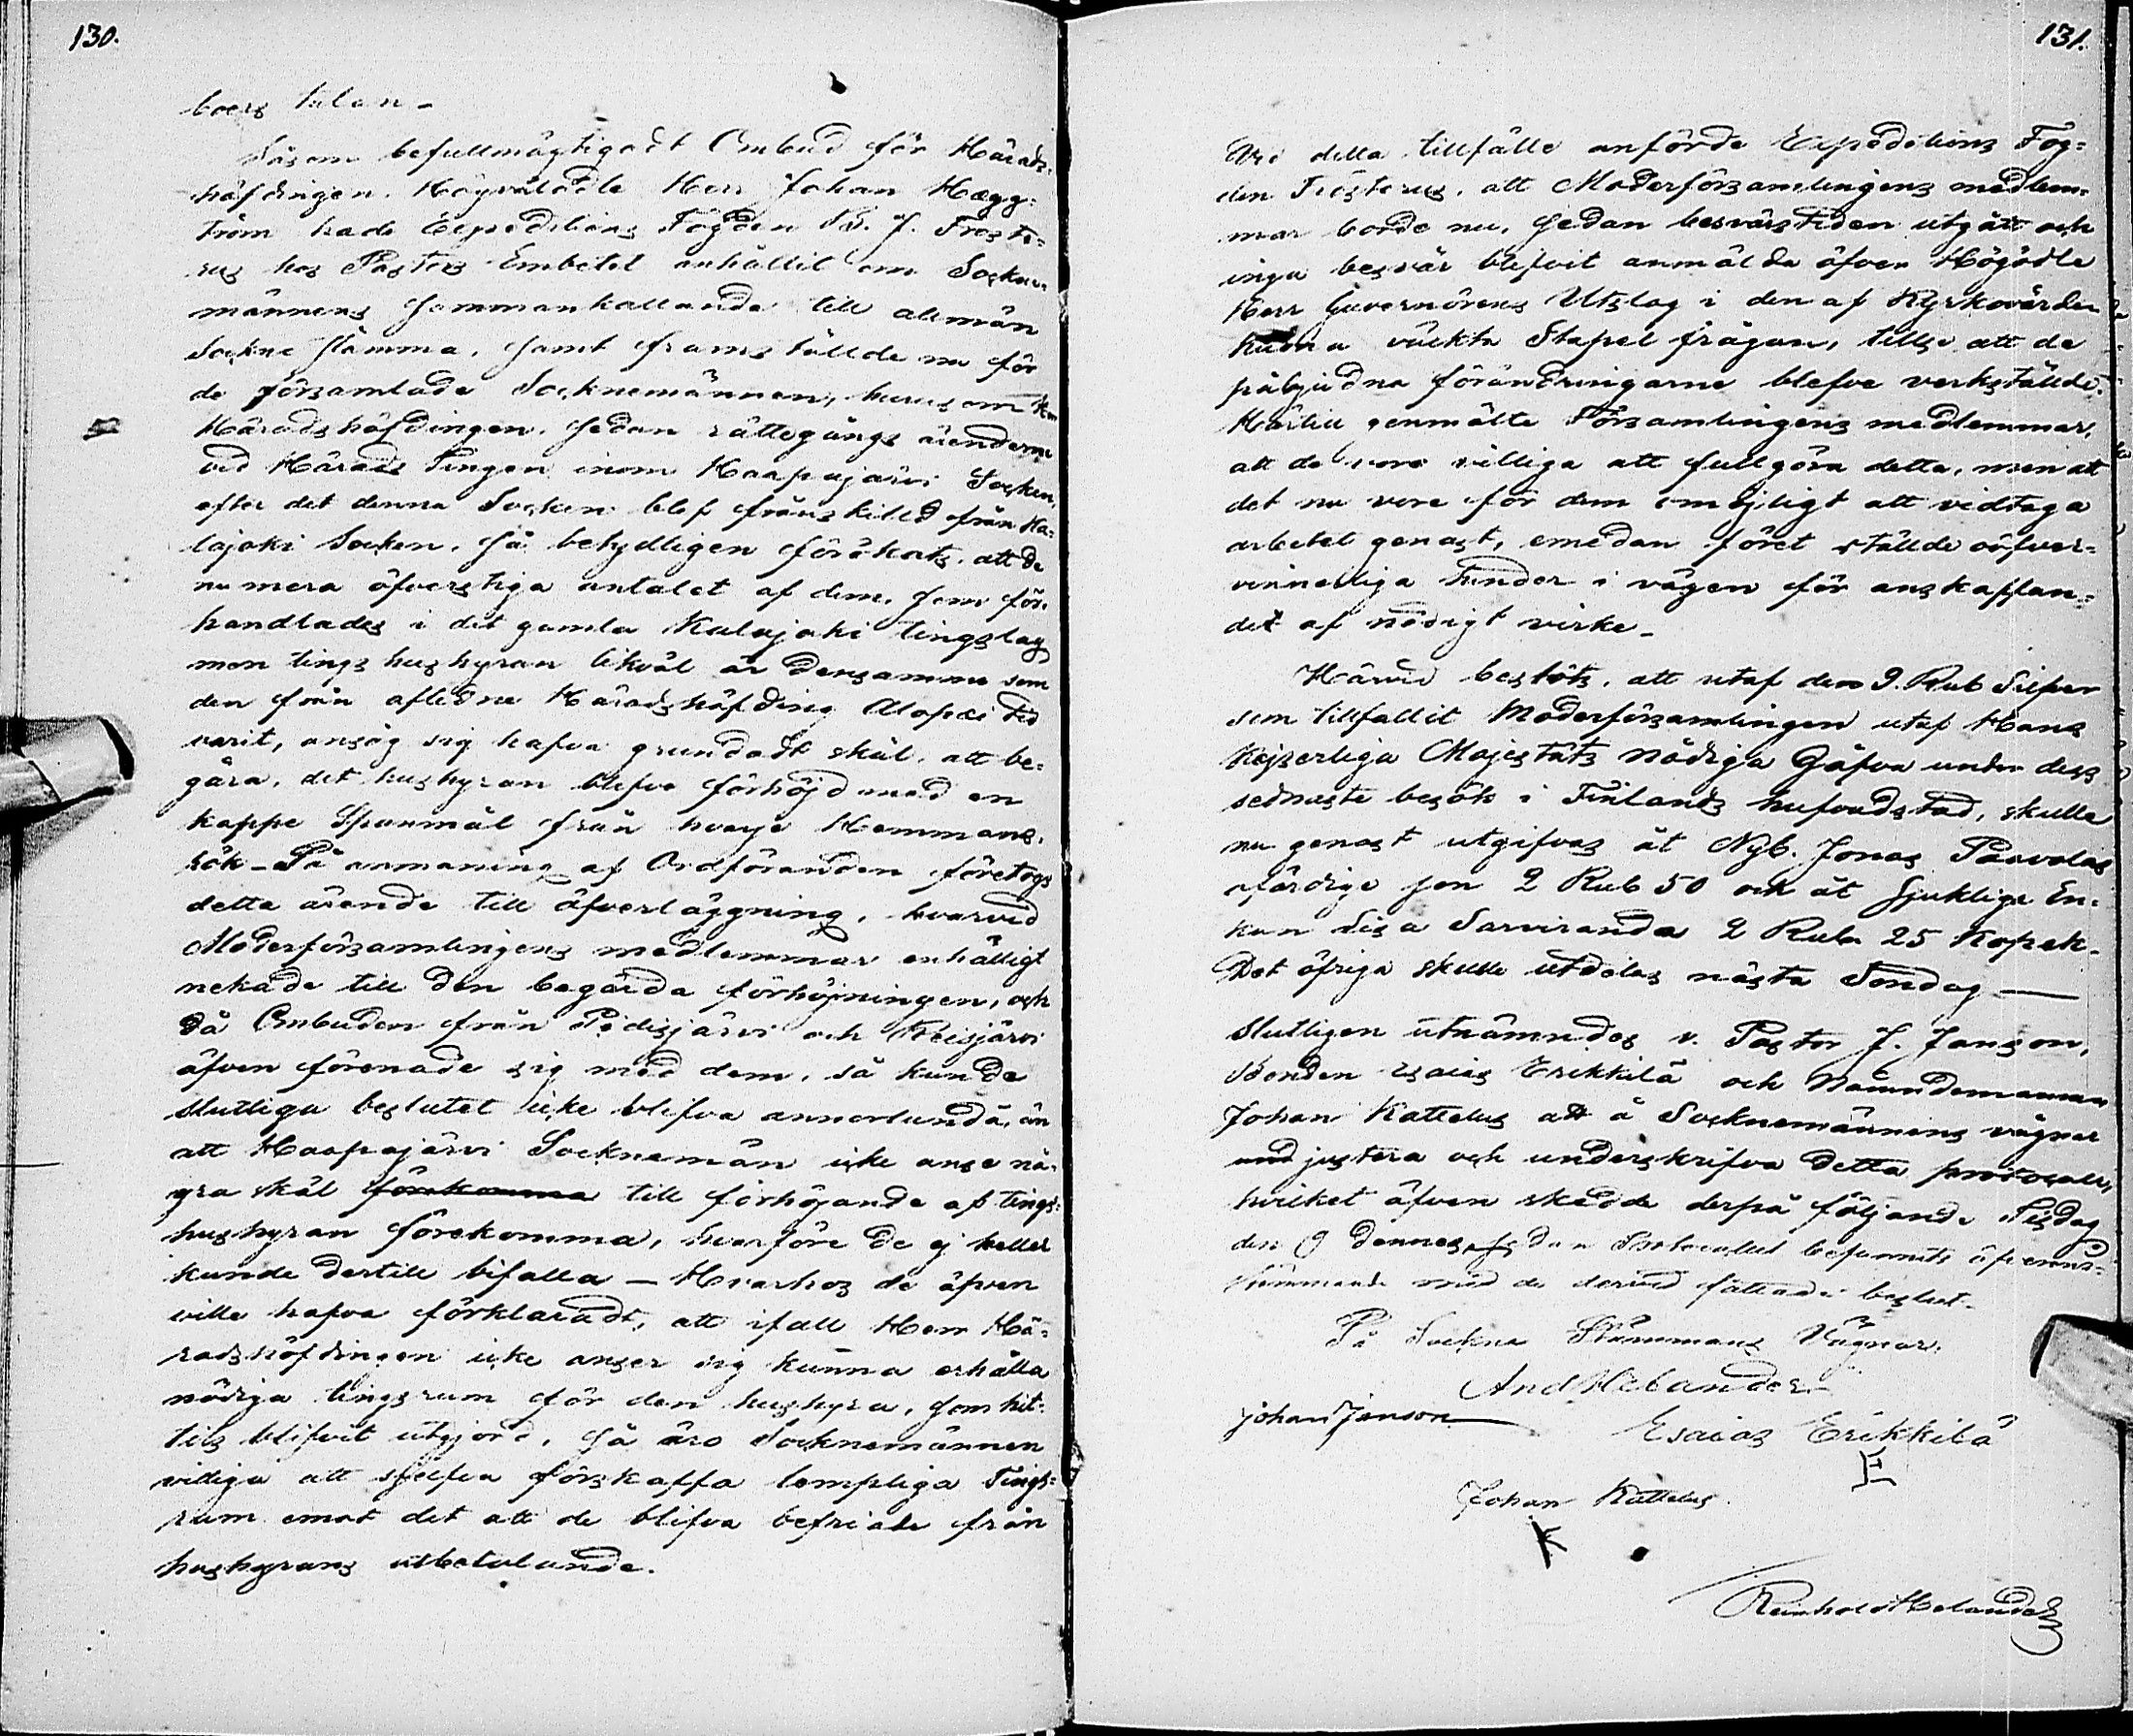 130.
boers talan -
Såsom befullmägtigadt Ombud för Härads-
höfdingen, Högvälädle Herr Johan Hägg-
tröm hade Expeditions Fogden J. Froste-
rus hos Pastors Embetet anhållit om Sockne-
männens sammankallande till allmän
Sockne stämma, samt framställde nu för
de församlade Socknemännen, hurusom Herr
Häradshöfdingen, sedan rättegångs ärenderne
vid Härads Tingen inom Haapajärvi Socken,
efter det denna Socken blef frånskilld från Ka-
lajoki Socken, så betydligen förökats, att de
numera öfverstiga antalet af dem, som för-
handlades i det gamla Kalajoki tingslag
men tingshushyran likväl är densamma som
den från aflidne Häradshöfding Alopæi tid
varit, ansåg sig hafva grundadt skäl, att be-
gära, det hushyran blefve förhöjd med en
kappe Spanmål från hvarje Hemmans-
rök - På anmaning af Ordföranden företogs
detta ärende till öfverläggning, hvarvid
Moderförsamlingens medlemmar enhälligt
nekade till den begärda förhöjningen, och
då Ombuden från Pidisjärvi och Reisjärvi
äfven förenade sig med dem, så kunde
slutliga beslutet icke blifva annorlunda, än
att Haapajärvi Socknemän icke anse nå-
gra skäl förekomma till förhöjande af tings-
hushyran förekomma, hvarföre de ej heller
kunde dertill bifalla — Hvarhos de äfven
ville hafva förklaradt, att ifall Herr Hä-
radshöfdingen icke anser sig kunna erhålla
nödiga tingsrum för den hushyra, som hit-
tils blifvit utgjord, så äro Socknemännen
villiga att sjelfva förskaffa lempliga Tings-
rum emot det att de blifva befriade från
hushyrans utbetalande.
131.
Vid detta tillfälle anförde Expeditions Fog-
den Frosterus, att Moderförsamlingens medlem-
mar borde nu, sedan besvärstiden utgått och
inga besvär blifvit anmälda öfver Högädle
Herr Guvernörens Utslag i den af Kyrkovärden
Kuona väckta Stapel frågan, tillse att de
påbjudna förändringarne blefve verkställde.
Härtill genmälte Församlingens medlemmar,
att de vore villiga att fullgöra detta, men att
det nu vore för dem omöjligt att vidtaga
arbetet genast, emedan föret ställde oöfver-
vinnerliga hinder i vägen för anskaffan-
det af nödigt virke -
Härvid beslöts, att utaf den 9. Rub Silfver
som tillfallit Moderförsamlingen utaf Hans
Kejserliga Majestäts nådiga Gåfva under dess
sednaste besök i Finlands hufvudstad, skulle
nu genast utgifvas åt Nyb. Jonas Paavolas
ofärdige son 2 Rub 50 och åt sjukliga En-
kan Lisa Sarviranda 2 Rub. 25 Kopek -
Det öfriga skulle utdelas nästa Söndag —
Slutligen utnämndes v. Pastor J. Janson,
Bonden Esaias Erikkilä och Nämndemannen
Johan Kattelus att å Socknemännens vägnar
und justera och underskrifva detta protocoll,
hvilket äfven skedde derpå följande Tisdag
den 9 dennes, sedan Protocollet befunnits öfverens-
stämmande med de dervid fattade beslut.
På Sockne Stämmans Vägnar.
And Helander
Johan Janson
Esaias Erikkilä
E
Johan Kattelus.
K
Reinhold Helander